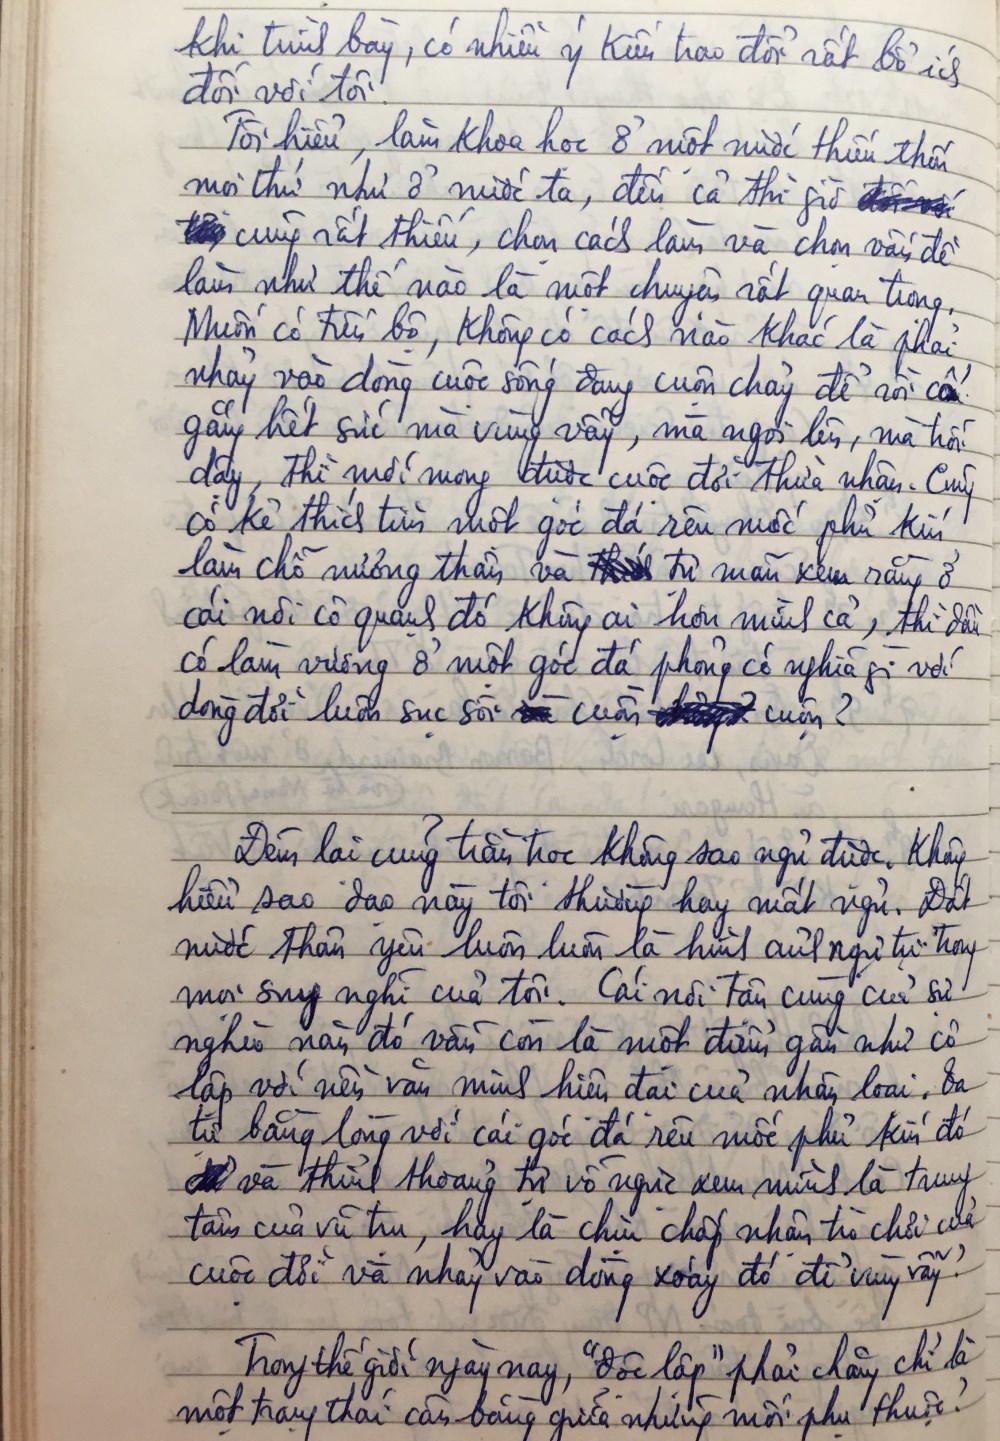 khi trình bày, có nhiều ý kiến trao đổi rất bổ ích
đối với tôi.
Tôi hiểu, làm khoa học ở một nước thiếu thốn
mọi thứ như ở nước ta, đến cả thì giờ
cũng rất thiếu, chọn cách làm và chọn vấn đề
làm như thế nào là một chuyện rất quan trọng.
Muốn có tiến bộ, không có cách nào khác là phải
nhảy vào dòng cuộc sống đang cuộn chảy để rồi cố
gắng hết sức mà vùng vẫy, mà ngoi lên, mà trồi
dậy, thì mới mong được cuộc đời thừa nhận. Cũng
có kẻ thích tìm một góc đá rêu mốc phủ kín
làm chỗ nương thân và tự mãn xem rằng ở
cái nơi cô quạnh đó không ai hơn mình cả, thì dẫu
có làm vương ở một góc đá phỏng có nghĩa gì với
dòng đời luôn sục sôi cuồn cuộn?
Đêm lại cũng trằn trọc không sao ngủ được. Không
hiểu sao dạo này tôi thường hay mất ngủ. Đất
nước thân yêu luôn luôn là hình ảnh ngự trị trong
mọi suy nghĩ của tôi. Cái nơi tận cùng của sự
nghèo nàn đó vẫn còn là một điểm gần như cô
lập với nền văn minh hiện đại của nhân loại. Ta
tự bằng lòng với cái góc đá rêu mốc phủ kín đó
và thỉnh thoảng tự vỗ ngực xem mình là trung
tâm của vũ trụ, hay là chịu chấp nhận trò chơi của
cuộc đời và nhảy vào dòng xoáy đó để vùng vẫy?
Trong thế giới ngày nay, "độc lập" phải chăng chỉ là
một trạng thái cân bằng giữa những mối phụ thuộc?